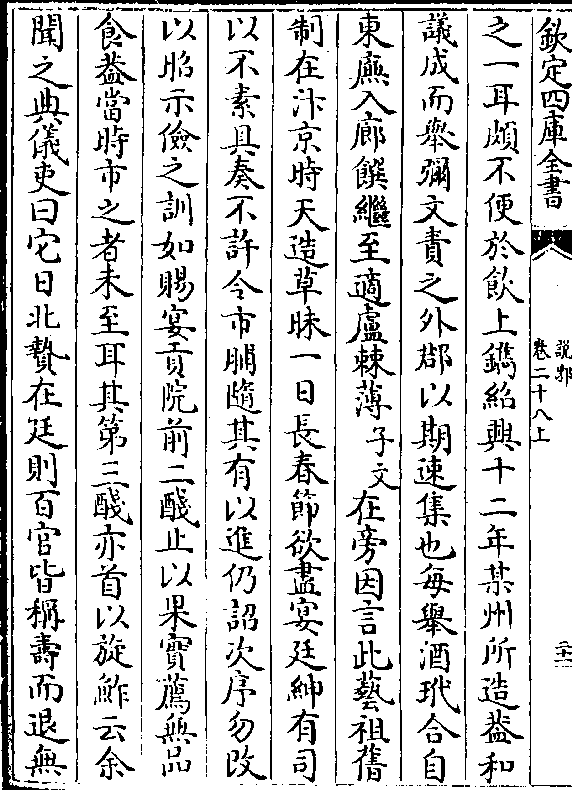 欽定四庫全書
說郛
卷二十八上
二十二
之一耳頗不便於飲上鐫紹興十二年某州所造葢和
議成而舉彌文責之外郡以期速集也每舉酒玳合自
東廡入廊饌繼至適盧棘薄子文在旁因言此藝祖舊
制在汴京時天造草昧一日長春節欲盡宴廷紳有司
以不素具奏不許令市脯隨其有以進仍詔次序勿改
以昭示儉之訓如賜宴貢院前二醆止以果實薦無品
食葢當時市之者未至耳其第三醆亦首以旋鮓云余
聞之典儀吏曰它日北贄在廷則百官皆稱壽而退無